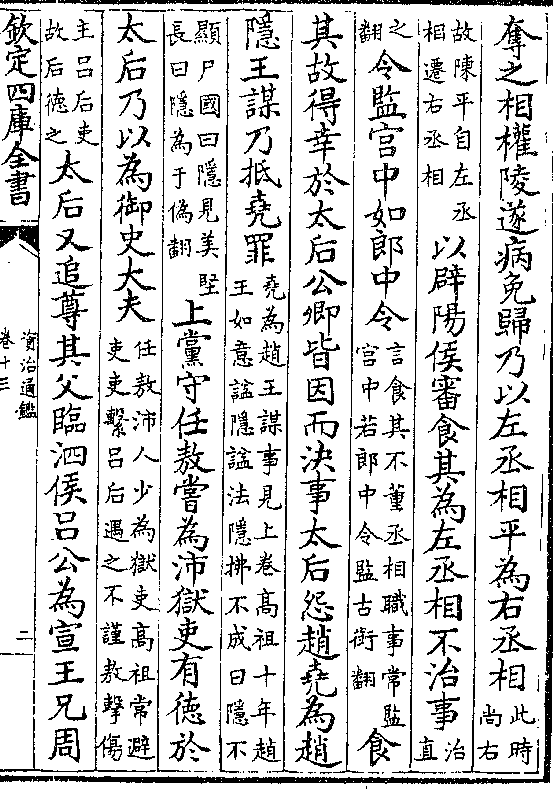 奪之相權陵遂病免歸乃以左丞相平為右丞相此時尚右
故陳平自左丞相遷右丞相以辟陽侯審食其為左丞相不治事治直
之翻令監宫中如郎中令言食其不董丞相職事常監宫中若郎中令監古銜翻食
其故得幸於太后公卿皆因而決事太后怨趙堯為趙
隱王謀乃抵堯罪堯為趙王謀事見上卷髙祖十年趙王如意諡隱諡法隱拂不成曰隱不
顯尸國曰隱見美堅長曰隱為于偽翻上黨守任敖嘗為沛獄吏有徳於
太后乃以為御史大夫任敖沛人少為獄吏髙祖常避吏吏繫吕后遇之不謹敖擊傷
主吕后吏故后徳之太后又追尊其父臨泗侯吕公為宣王兄周
欽定四庫全書
資治通鑑
卷十三
二